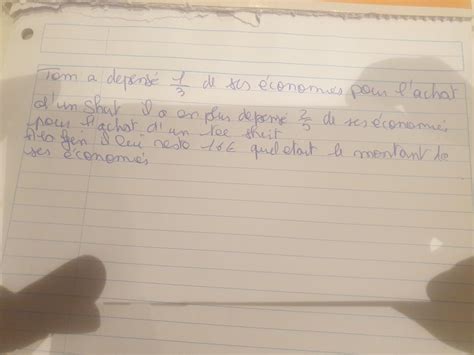 Tom a depensé 1/3 de ses économies pour l'achat
d'un Short il a en plus depensé 2/5 de ses économies
pour l'achat d'un tee sheit
il lui reste 16€ quel etait le montant de
ses économies